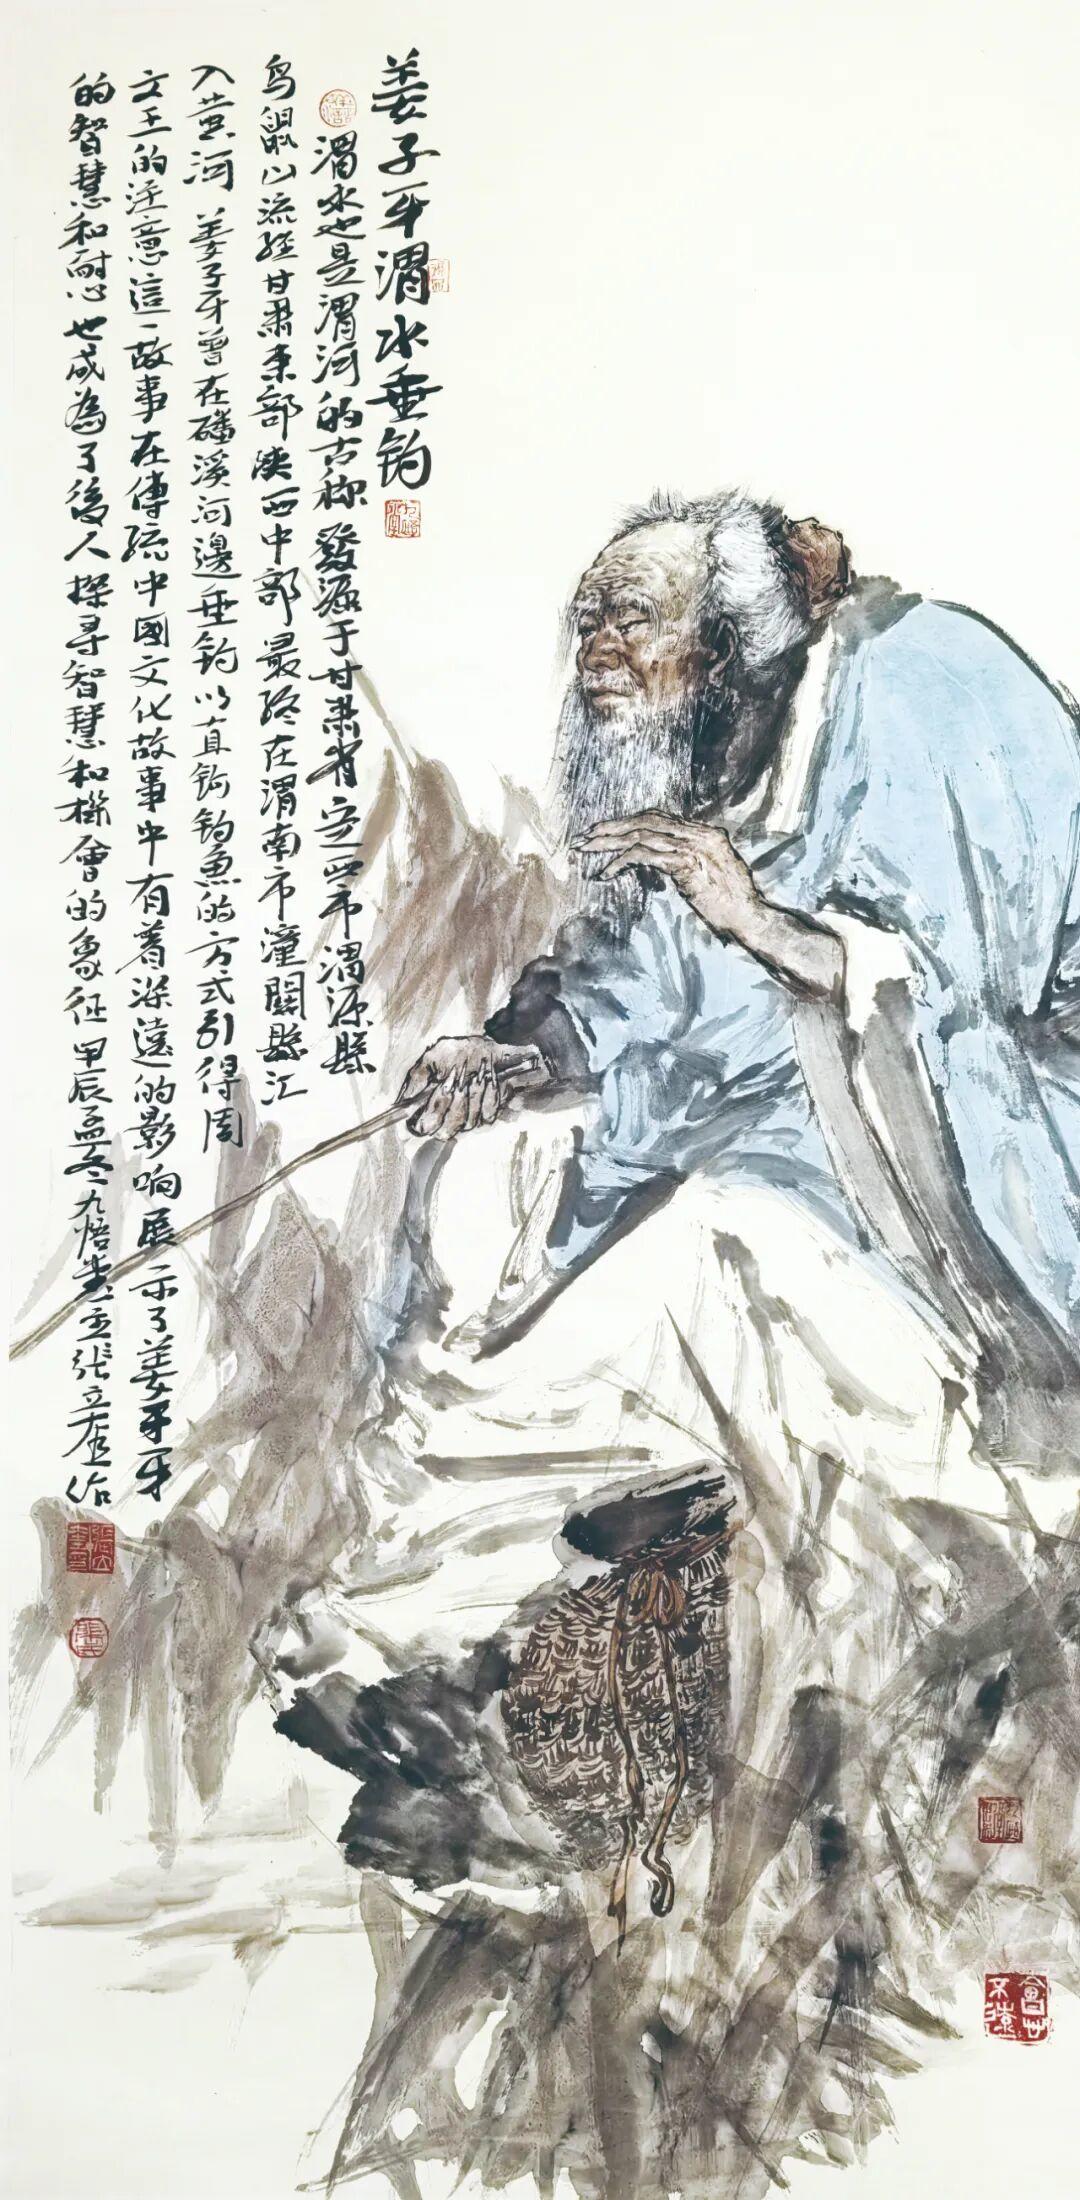 姜子牙渭水垂钓
渭水也是渭河的古称發源于甘肃省定西市渭源縣
鸟鼠山流经甘肃東部陕西中部最终在渭南市潼關縣汇
入黄河姜子牙曾在磻溪河邊垂钓以直钩钓魚的方式引得周
文王的注意這一故事在傳统中國文化故事中有着深遠的影响展示了姜子牙
的智慧和耐心也成為了後人探寻智慧和機會的象征甲辰孟冬九悟堂主张立奎作
會心不遠